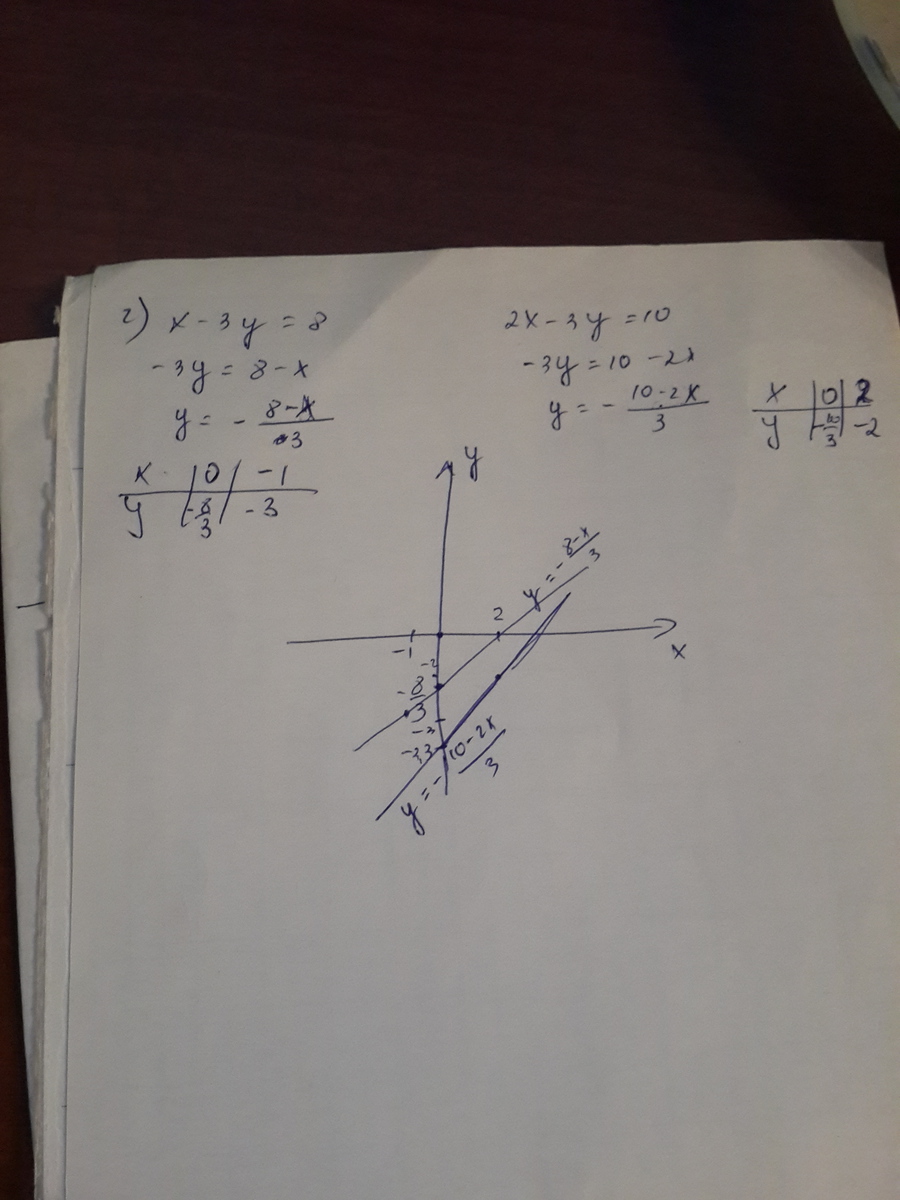 г) x - 3y = 8
-3y = 8 - x
y = - \frac{8-x}{3}
x | 0 | -1
y | -\frac{8}{3} | -3
2x - 3y = 10
-3y = 10 - 2x
y = - \frac{10-2x}{3}
x | 0 | 2
y | -\frac{10}{3} | -2
y
y = - \frac{8-x}{3}
2
-1
x
-2
-\frac{8}{3}
-3
-3,3
y = - \frac{10-2x}{3}